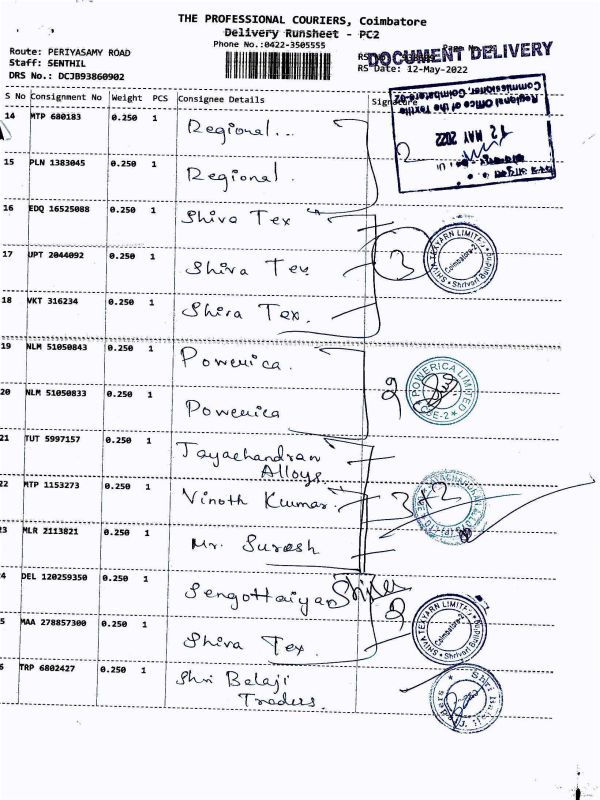 THE PROFESSIONAL COURIERS, Coimbatore
Delivery Runsheet - PC2
Phone No.:0422-3505555
Route: PERIYASAMY ROAD
Staff: SENTHIL
DRS No.: DCJB93860902
DOCUMENT DELIVERY
RS Date: 12-May-2022
S No Consignment No Weight PCS Consignee Details Signature
Regional Office of the Textile
Commissioner, Coimbatore-02
12 MAY 2022
14 MTP 680183 0.250 1 Regional...
15 PLN 1383045 0.250 1 Regional
2
16 EDQ 16525088 0.250 1 Shiva Tex
17 UPT 2044092 0.250 1 Shiva Tex
18 VKT 316234 0.250 1 Shiva Tex.
3
SHIVA TEXYARN LIMITED
Coimbatore
Shrivari Building
19 NLM 51050843 0.250 1 Powerica.
20 NLM 51050833 0.250 1 Powerica
2
POWERICA LIMITED
CBE-2
21 TUT 5997157 0.250 1 Jayachandran
Alloys.
22 MTP 1153273 0.250 1 Vinoth Kumar.
3 MLR 2113821 0.250 1 Mr. Suresh
4 DEL 120259350 0.250 1 Sengottaiyan
5 MAA 278857300 0.250 1 Shiva Tex.
2
SHIVA TEXYARN LIMITED
Coimbatore
Shrivari Building
6 TRP 6802427 0.250 1 Shri Balaji
Traders.